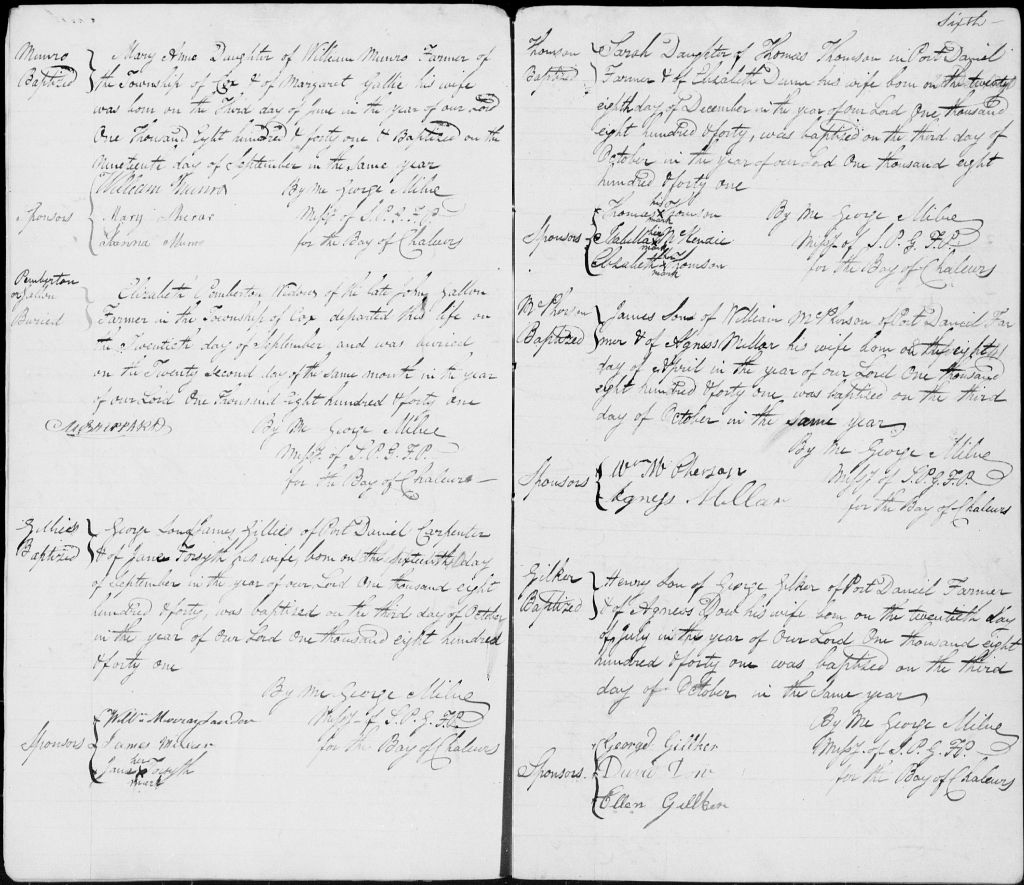 Munro
Baptized
Mary Anne Daughter of William Munro Farmer of
the Township of Cox & of Margaret Gallie his wife
was born on the Third day of June in the year of our Lord
One Thousand Eight hundred & forty one & Baptized on the
Nineteenth day of September in the Same year
William Munro By Me George Milne
Sponsors Mary Missy. of S.P.G.F.P.
Joanna Munro for the Bay of Chaleurs
Pemberton
or Fallon
Buried
Elizabeth Pemberton Widow of the late John Fallon
Farmer in the Township of Cox departed this life on
the Twentieth day of September and was buried
on the Twenty Second day of the Same month in the year
of our Lord One Thousand Eight hundred & forty One
By Me George Milne
Missy. of S.P.G.F.P.
for the Bay of Chaleurs
Gillies
Baptized
George Son of James Gillies of Port Daniel Carpenter
& of Jane Forsyth his wife, born on the Sixteenth day
of September in the year of our Lord One thousand eight
hundred & forty, was baptized on the third day of October
in the year of our Lord One thousand eight hundred
& forty one
By Me George Milne
Willm Murray Missy. of S.P.G.F.P.
Sponsors James for the Bay of Chaleurs
her
Jane x Forsyth
mark
Sixth
Thomson
Baptized
Sarah Daughter of Thomas Thomson in Port Daniel
Farmer & of Elizabeth Dunn his wife born on the twenty
eighth day of December in the year of our Lord One thousand
eight hundred & forty, was baptized on the third day of
October in the year of our Lord One thousand eight
hundred & forty one
his
Thomas x Tomson By Me George Milne
mark
her
Sponsors Isabella x McKenzie Missy. of S.P.G.F.P.
mark
her
Elizabeth x Tomson for the Bay of Chaleurs
mark
McPherson
Baptized
James Son of William McPherson of Port Daniel Far
mer & of Agness Millar his wife born on the eighth
day of April in the year of our Lord One thousand
eight hundred & forty one was baptized on the third
day of October in the same year
By Me George Milne
Sponsors Wm McPherson Missy. of S.P.G.F.P.
Agness Millar for the Bay of Chaleurs
Gilker
Baptized
Henry Son of George Gilker of Port Daniel Farmer
& of Agness Dow his wife born on the twentieth day
of July in the year of Our Lord One thousand eight
hundred & forty one was baptized on the third
day of October in the Same year
By Me George Milne
George Gilker Missy. of S.P.G.F.P.
Sponsors. Dow for the Bay of Chaleurs
Ellen Gilker